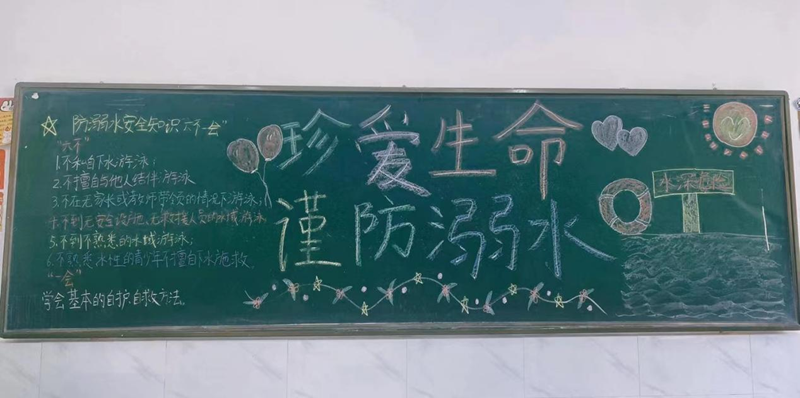 防溺水安全知识“六不一会”
“六不”
1.不私自下水游泳；
2.不擅自与他人结伴游泳
3.不在无家长或教师带领的情况下游泳；
4.不到无安全设施、无救援人员的水域游泳
5.不到不熟悉的水域游泳；
6.不熟悉水性的青少年不擅自下水施救
“一会”
学会基本的自护、自救方法。
珍爱生命
谨防溺水
水深危险